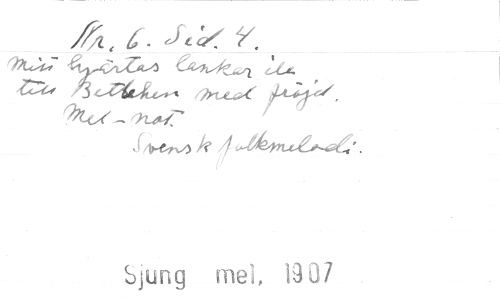 Nr. 6. Sid. 4.
Mitt hjärtas tankar ila
till Betlehem med fröjd.
Mel-not.
Svensk folkmelodi.
Sjung mel, 1907